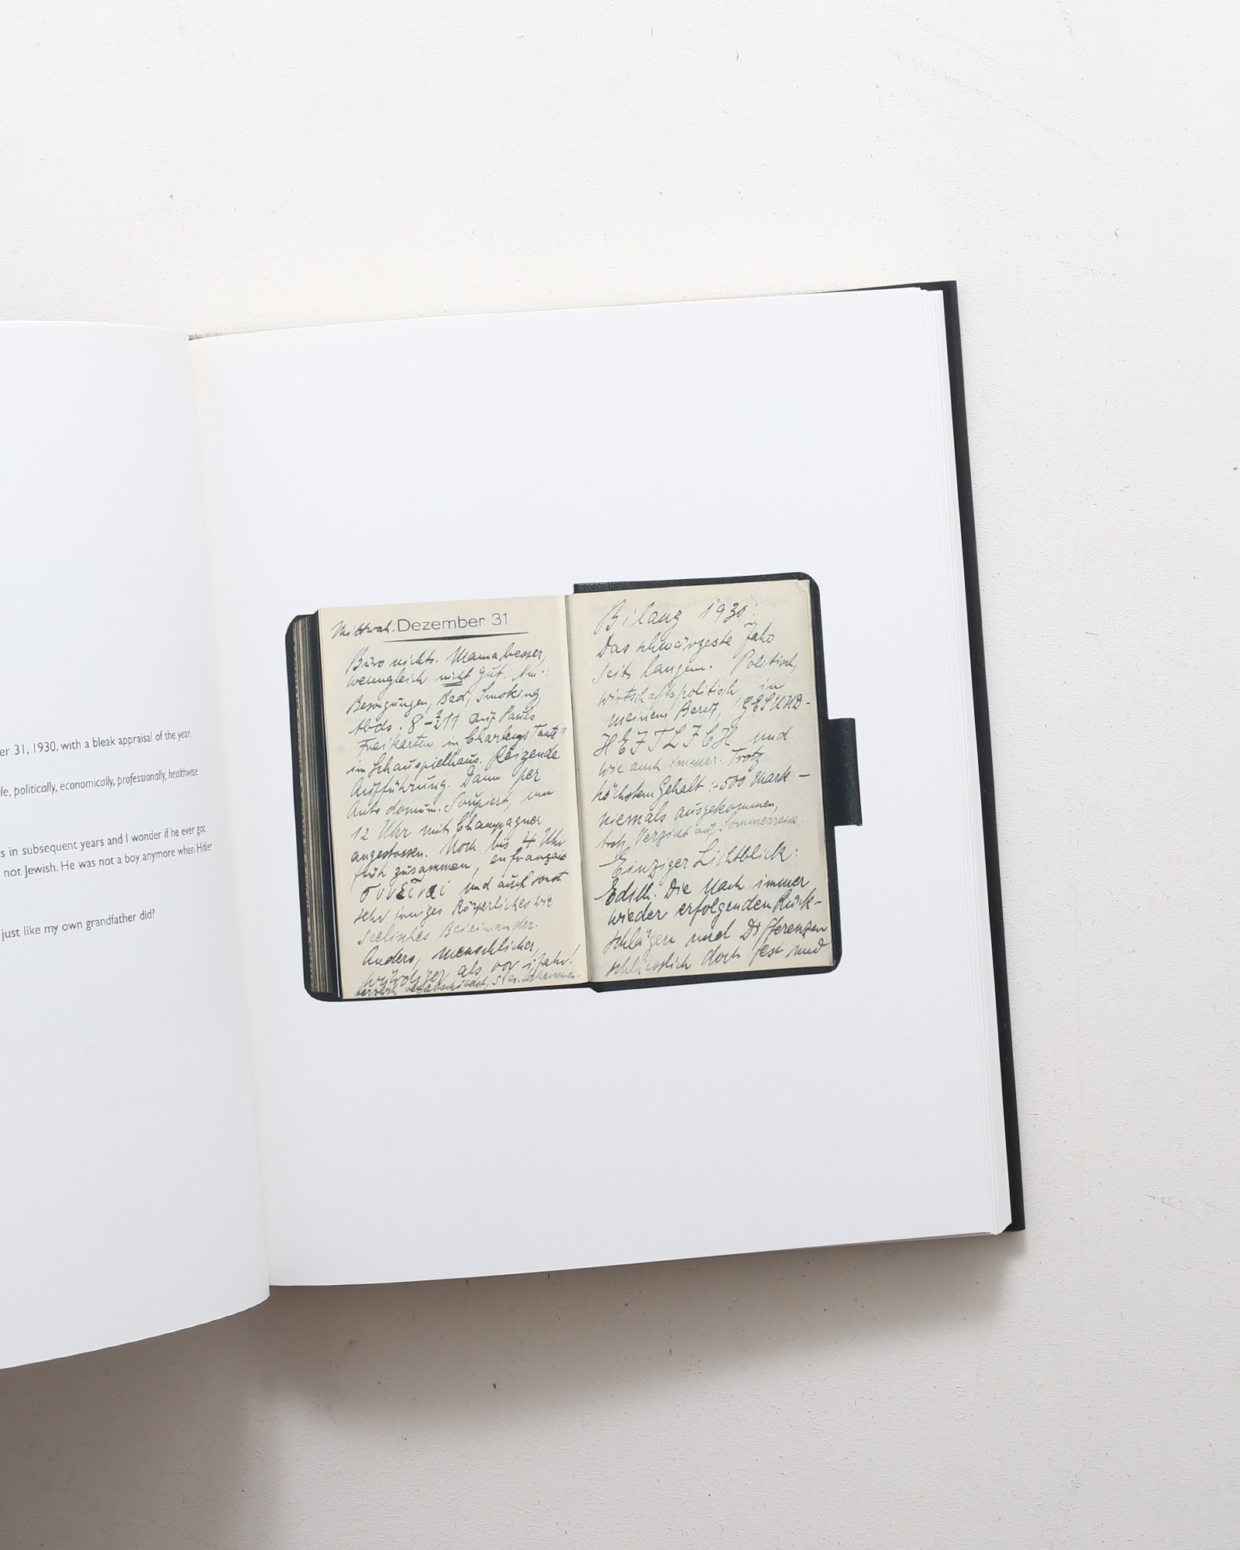 er 31, 1930, with a bleak appraisal of the year.
le, politically, economically, professionally, healthwise
s in subsequent years and I wonder if he ever got
not Jewish. He was not a boy anymore when Hitler
just like my own grandfather did?
Mittwoch. Dezember 31
Büro nichts. Mama besser,
wenngleich nicht gut. Nm.:
Besorgungen, Bad, Smoking
Abds. 8-¾11 auf Pauls
Freikarten in Charleys Tante
im Schauspielhaus. Reizende
Aufführung. Dann per
Auto domum. Soupiert, um
12 Uhr mit Champagner
angestossen. Noch bis 4 Uhr
früh zusammen,
und auch sonst
sehr inniges Körperliches wie
Seelisches Beieinander.
Anders, menschlicher,
würdiger als vor 1 Jahr!
Bilanz 1930:
Das schwärzeste Jahr
seit langem. Politisch,
wirtschaftspolitisch, in
meinem Beruf, GESUND-
HEITLICH und
wie auch immer. Trotz
höchstem Gehalt :-500 Mark-
niemals ausgekommen,
trotz Verzicht auf Sommerreise.
Einziger Lichtblick:
Edith. Die nach immer
wieder erfolgenden Rück-
schlägen und Differenzen
schliesslich doch fest und